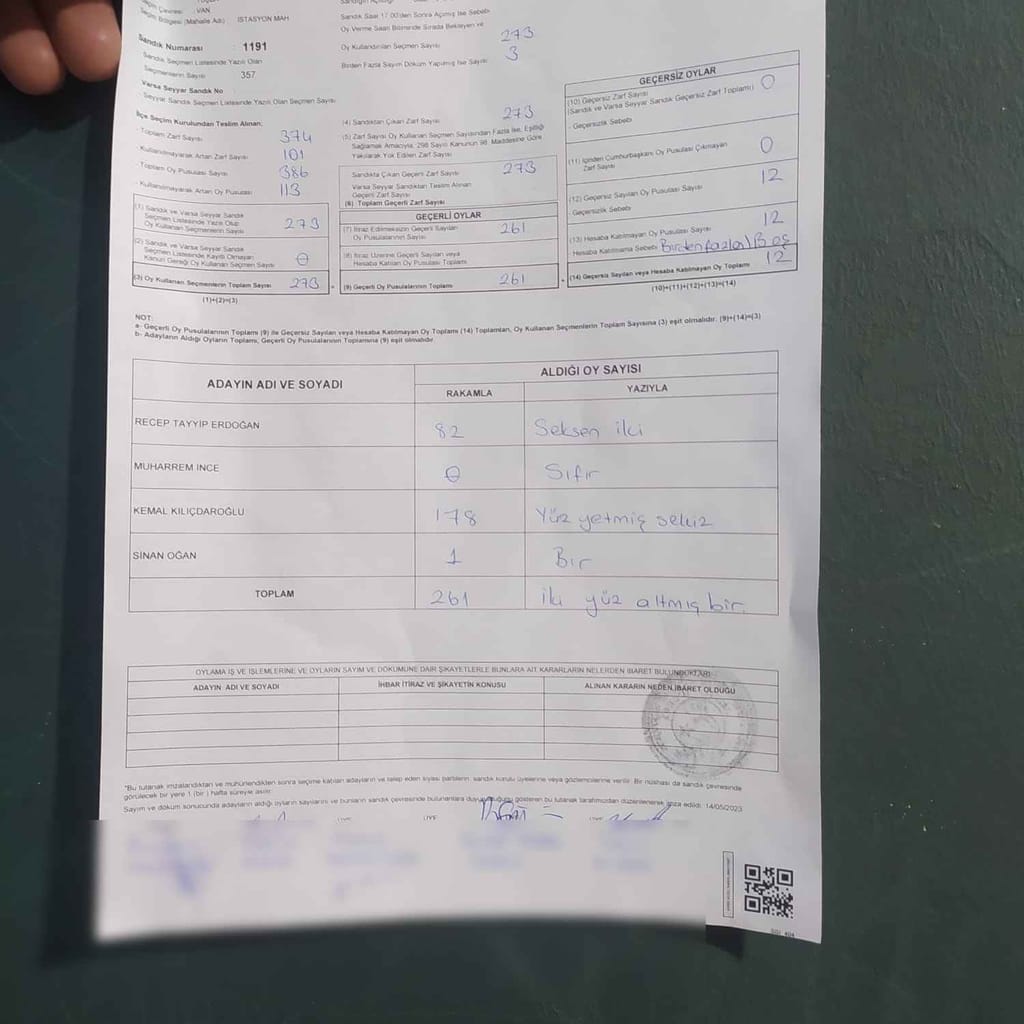 Seçim Çevresi : VAN
Seçim Bölgesi (Mahalle Adı) İSTASYON MAH
Sandık Numarası : 1191
Sandık Seçmen Listesinde Yazılı Olan
Seçmenlerin Sayısı 357
Varsa Seyyar Sandık No
Seyyar Sandık Seçmen Listesinde Yazılı Olan Seçmen Sayısı
Sandık Saat 17.00'den Sonra Açılmış İse Sebebi
Oy Verme Saati Bitiminde Sırada Bekleyen ve
Oy Kullandırılan Seçmen Sayısı 273
Birden Fazla Sayım Döküm Yapılmış İse Sayısı 3
İlçe Seçim Kurulundan Teslim Alınan:
- Toplam Zarf Sayısı 374
- Kullanılmayarak Artan Zarf Sayısı 101
- Toplam Oy Pusulası Sayısı 386
- Kullanılmayarak Artan Oy Pusulası 113
(1) Sandık ve Varsa Seyyar Sandık
Seçmen Listesinde Yazılı Olup
Oy Kullanan Seçmenlerin Sayısı 273
(2) Sandık ve Varsa Seyyar Sandık
Seçmen Listesinde Kayıtlı Olmayan
Kanun Gereği Oy Kullanan Seçmen Sayısı 0
(3) Oy Kullanan Seçmenlerin Toplam Sayısı 273
(1)+(2)=(3)
(4) Sandıktan Çıkan Zarf Sayısı 273
(5) Zarf Sayısı Oy Kullanan Seçmen Sayısından Fazla İse, Eşitliği
Sağlamak Amacıyla, 298 Sayılı Kanunun 98. Maddesine Göre
Yakılarak Yok Edilen Zarf Sayısı
Sandıkta Çıkan Geçerli Zarf Sayısı 273
Varsa Seyyar Sandıktan Teslim Alınan
Geçerli Zarf Sayısı
(6) Toplam Geçerli Zarf Sayısı
GEÇERLİ OYLAR
(7) İtiraz Edilmeksizin Geçerli Sayılan
Oy Pusulalarının Sayısı 261
(8) İtiraz Üzerine Geçerli Sayılan veya
Hesaba Katılan Oy Pusulası Toplamı
(9) Geçerli Oy Pusulalarının Toplamı 261
GEÇERSİZ OYLAR
(10) Geçersiz Zarf Sayısı 0
(Sandık ve Varsa Seyyar Sandık Geçersiz Zarf Toplamı)
- Geçersizlik Sebebi
(11) İçinden Cumhurbaşkanı Oy Pusulası Çıkmayan
Zarf Sayısı 0
(12) Geçersiz Sayılan Oy Pusulası Sayısı 12
- Geçersizlik Sebebi
(13) Hesaba Katılmayan Oy Pusulası Sayısı 12
- Hesaba Katılmama Sebebi Birden fazla / Boş
(14) Geçersiz Sayılan veya Hesaba Katılmayan Oy Toplamı 12
(10)+(11)+(12)+(13)=(14)
NOT:
a- Geçerli Oy Pusulalarının Toplamı (9) ile Geçersiz Sayılan veya Hesaba Katılmayan Oy Toplamı (14) Toplamları, Oy Kullanan Seçmenlerin Toplam Sayısına (3) eşit olmalıdır. (9)+(14)=(3)
b- Adayların Aldığı Oyların Toplamı, Geçerli Oy Pusulalarının Toplamına (9) eşit olmalıdır.
ADAYIN ADI VE SOYADI ALDIĞI OY SAYISI
RAKAMLA YAZIYLA
RECEP TAYYİP ERDOĞAN 82 Seksen iki
MUHARREM İNCE 0 Sıfır
KEMAL KILIÇDAROĞLU 178 Yüz yetmiş sekiz
SİNAN OĞAN 1 Bir
TOPLAM 261 iki yüz altmış bir
OYLAMA İŞ VE İŞLEMLERİNE VE OYLARIN SAYIM VE DÖKÜMÜNE DAİR ŞİKAYETLERLE BUNLARA AİT KARARLARIN NELERDEN İBARET BULUNDUKLARI
ADAYIN ADI VE SOYADI İHBAR İTİRAZ VE ŞİKAYETİN KONUSU ALINAN KARARIN NEDEN İBARET OLDUĞU
*Bu tutanak imzalandıktan ve mühürlendikten sonra seçime katılan adayların ve talep eden siyasi partilerin, sandık kurulu üyelerine veya gözlemcilerine verilir. Bir nüshası da sandık çevresinde
görülecek bir yere 1 (bir) hafta süreyle asılır.
Sayım ve döküm sonucunda adayların aldığı oyların sayılarını ve bunların sandık çevresinde bulunanlara duyurulduğunu gösteren bu tutanak tarafımızdan düzenlenerek imza edildi. 14/05/2023
ÜYE ÜYE ÜYE